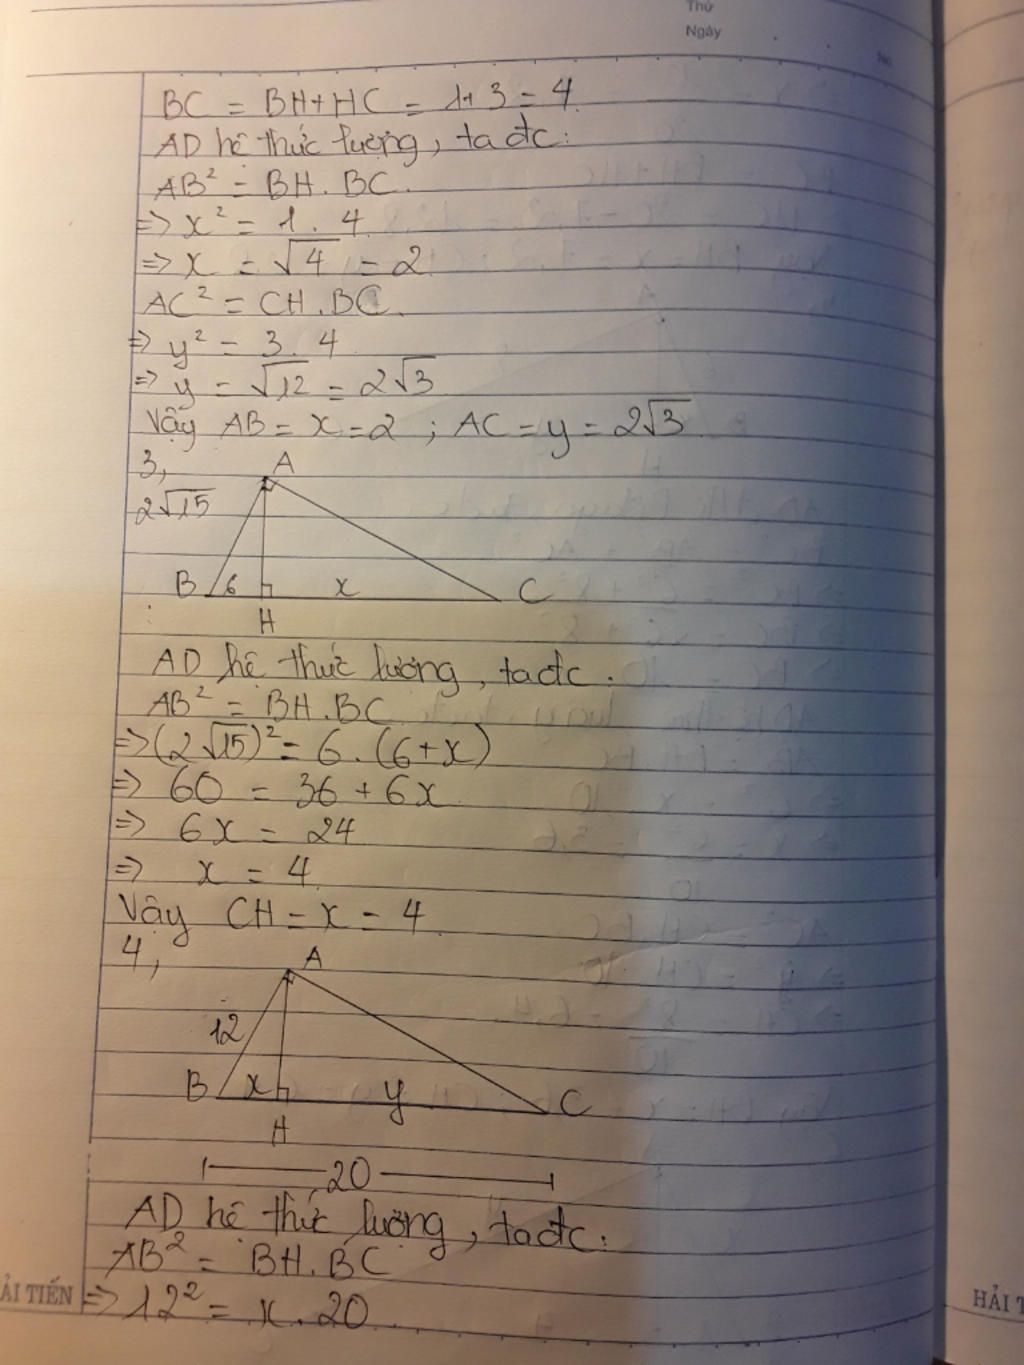 Thứ
Ngày
No
BC = BH+HC = 1+3 = 4
AD hệ thức lượng, ta đc:
AB² = BH.BC.
=> x² = 1.4
=> x = √4 = 2
AC² = CH.BC.
=> y² = 3.4
=> y = √12 = 2√3
Vậy AB = x = 2 ; AC = y = 2√3
3,
A
2√15
B 6 x C
H
AD hệ thức lượng, ta đc.
AB² = BH.BC
=> (2√15)² = 6.(6+x)
=> 60 = 36 + 6x
=> 6x = 24
=> x = 4
Vậy CH = x = 4
4,
A
12
B x y C
H
20
AD hệ thức lượng, ta đc:
AB² = BH.BC
ẢI TIẾN
=> 12² = x.20
HẢI T